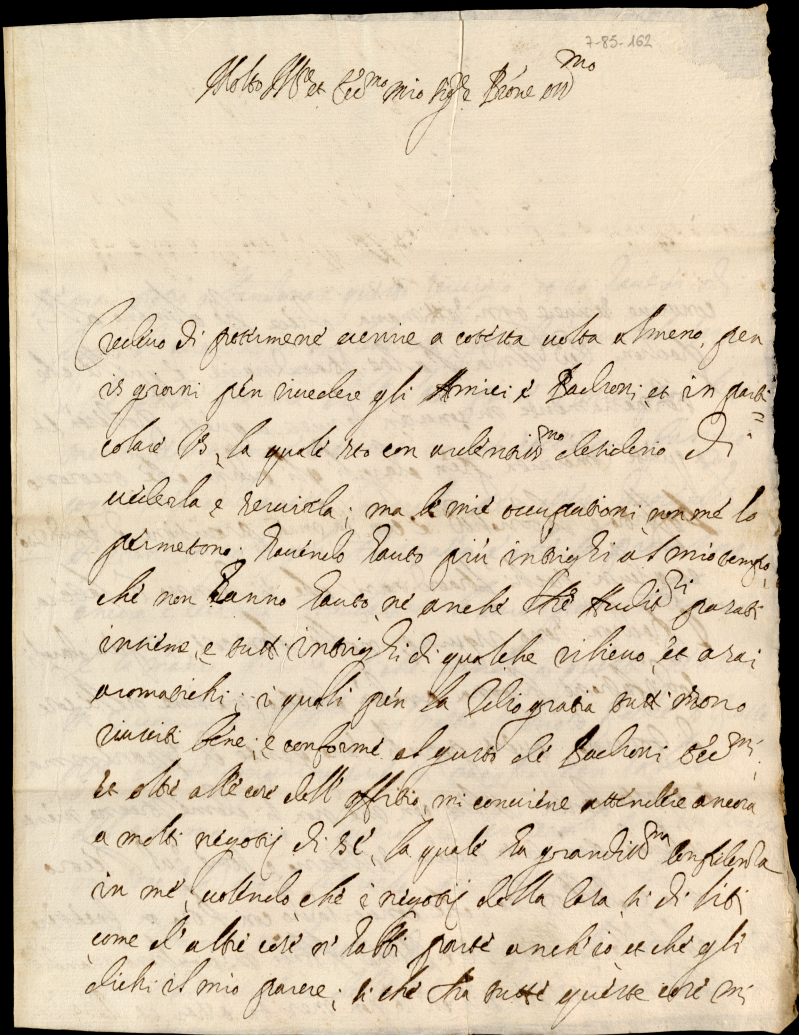 7-85-162
Molto Ill.re et Ecc.mo mio Sig.re Prone oss.mo
Credevo di potermene venire a cotesta volta almeno, per
15 giorni per rivedere gli Amici e Padroni, et in parti=
colare VS, la quale sto con ardentiss.mo desiderio di
vederla e servirla; ma le mie occupationi non me lo
permettono; havendo havuto più intrighi al mio tempo,
che non hanno havuto, ne anche tre Audit.ri passati
insieme, e tutti intrighi di qualche rilievo, et assai
aromatichi; i quali per la Dio gratia tutti mi sono
riusciti bene; e conforme al gusto de Padroni Ecc.mi;
et oltre alle cose dell' offitio, mi conviene attendere ancora
a molti negotij di SE, la quale ha grandiss.ma confidenza
in me, volendo che i negotij della Casa, si di liti
come d'altre cose n'habbi parte anch'io, et che gli
dichi il mio parere; si che tra tutte queste cose mi